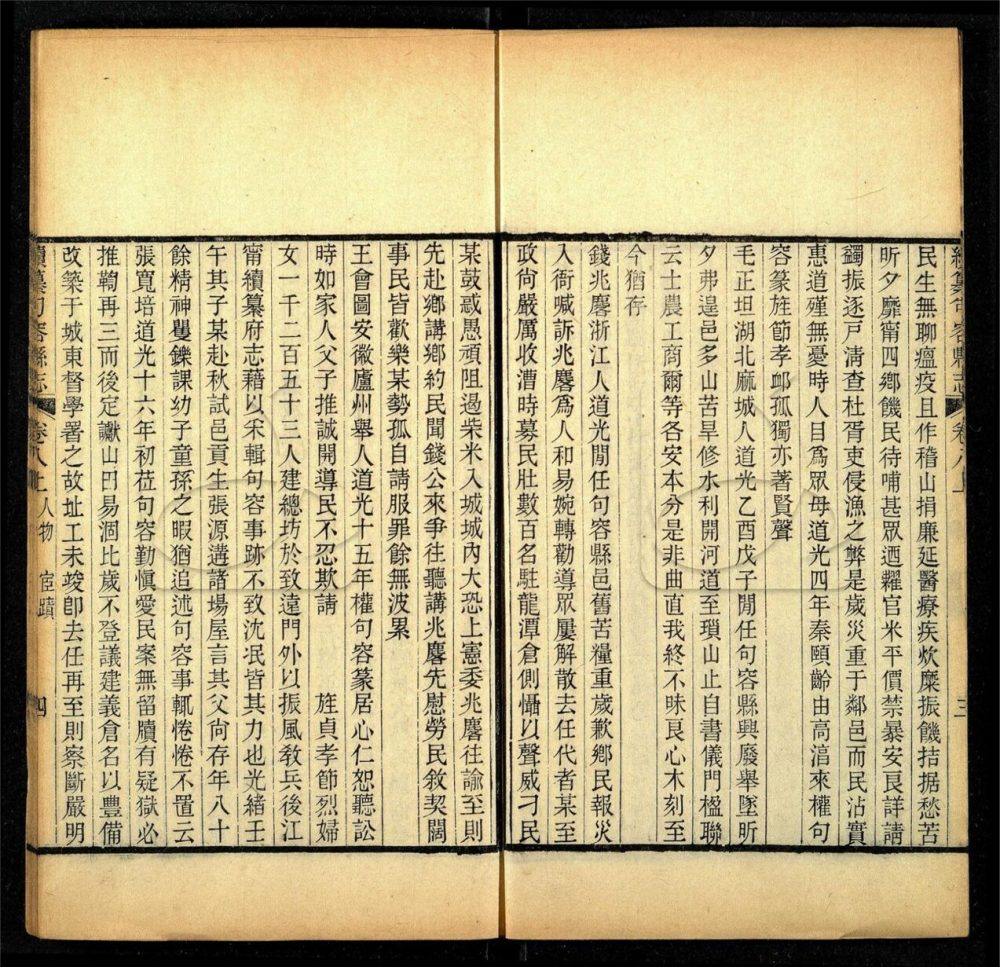 續纂句容縣志 卷八上 三
民生無聊瘟疫且作稽山捐廉延醫療疾炊糜振饑拮据愁苦
昕夕靡甯四鄉饑民待哺甚眾迺糶官米平價禁暴安良詳請
蠲振逐戸淸查杜胥吏侵漁之弊是歲災重于鄰邑而民沾實
惠道殣無憂時人目爲眾母道光四年秦頤齡由高湻來權句
容篆旌節孝卹孤獨亦著賢聲
毛正坦湖北麻城人道光乙酉戊子閒任句容縣興廢舉墜昕
夕弗遑邑多山苦旱修水利開河道至瑣山止自書儀門楹聯
云士農工商爾等各安本分是非曲直我終不昧良心木刻至
今猶存
錢兆麐浙江人道光閒任句容縣邑舊苦糧重歲歉鄉民報災
入衙喊訴兆麐爲人和易婉轉勸導眾屢解散去任代者某至
政尙嚴厲收漕時募民壯數百名駐龍潭倉側懾以聲威刁民
某鼓惑愚頑阻遏柴米入城城內大恐上憲委兆麐往諭至則
先赴鄉講鄉約民聞錢公來爭往聽講兆麐先慰勞民敘契闊
事民皆歡樂某勢孤自請服罪餘無波累
王會圖安徽廬州舉人道光十五年權句容篆居心仁恕聽訟
時如家人父子推誠開導民不忍欺請 旌貞孝節烈婦
女一千二百五十三人建總坊於致遠門外以振風敎兵後江
甯續纂府志藉以釆輯句容事跡不致沈冺皆其力也光緒壬
午其子某赴秋試邑貢生張源遘諸場屋言其父尙存年八十
餘精神矍鑠課幼子童孫之暇猶追述句容事輒惓惓不置云
張寬培道光十六年初莅句容勤愼愛民案無留牘有疑獄必
推鞫再三而後定讞山田易涸比歲不登議建義倉名以豐備
改築于城東督學署之故址工未竣卽去任再至則察斷嚴明
續纂句容縣志 卷八上 人物 宦蹟 四